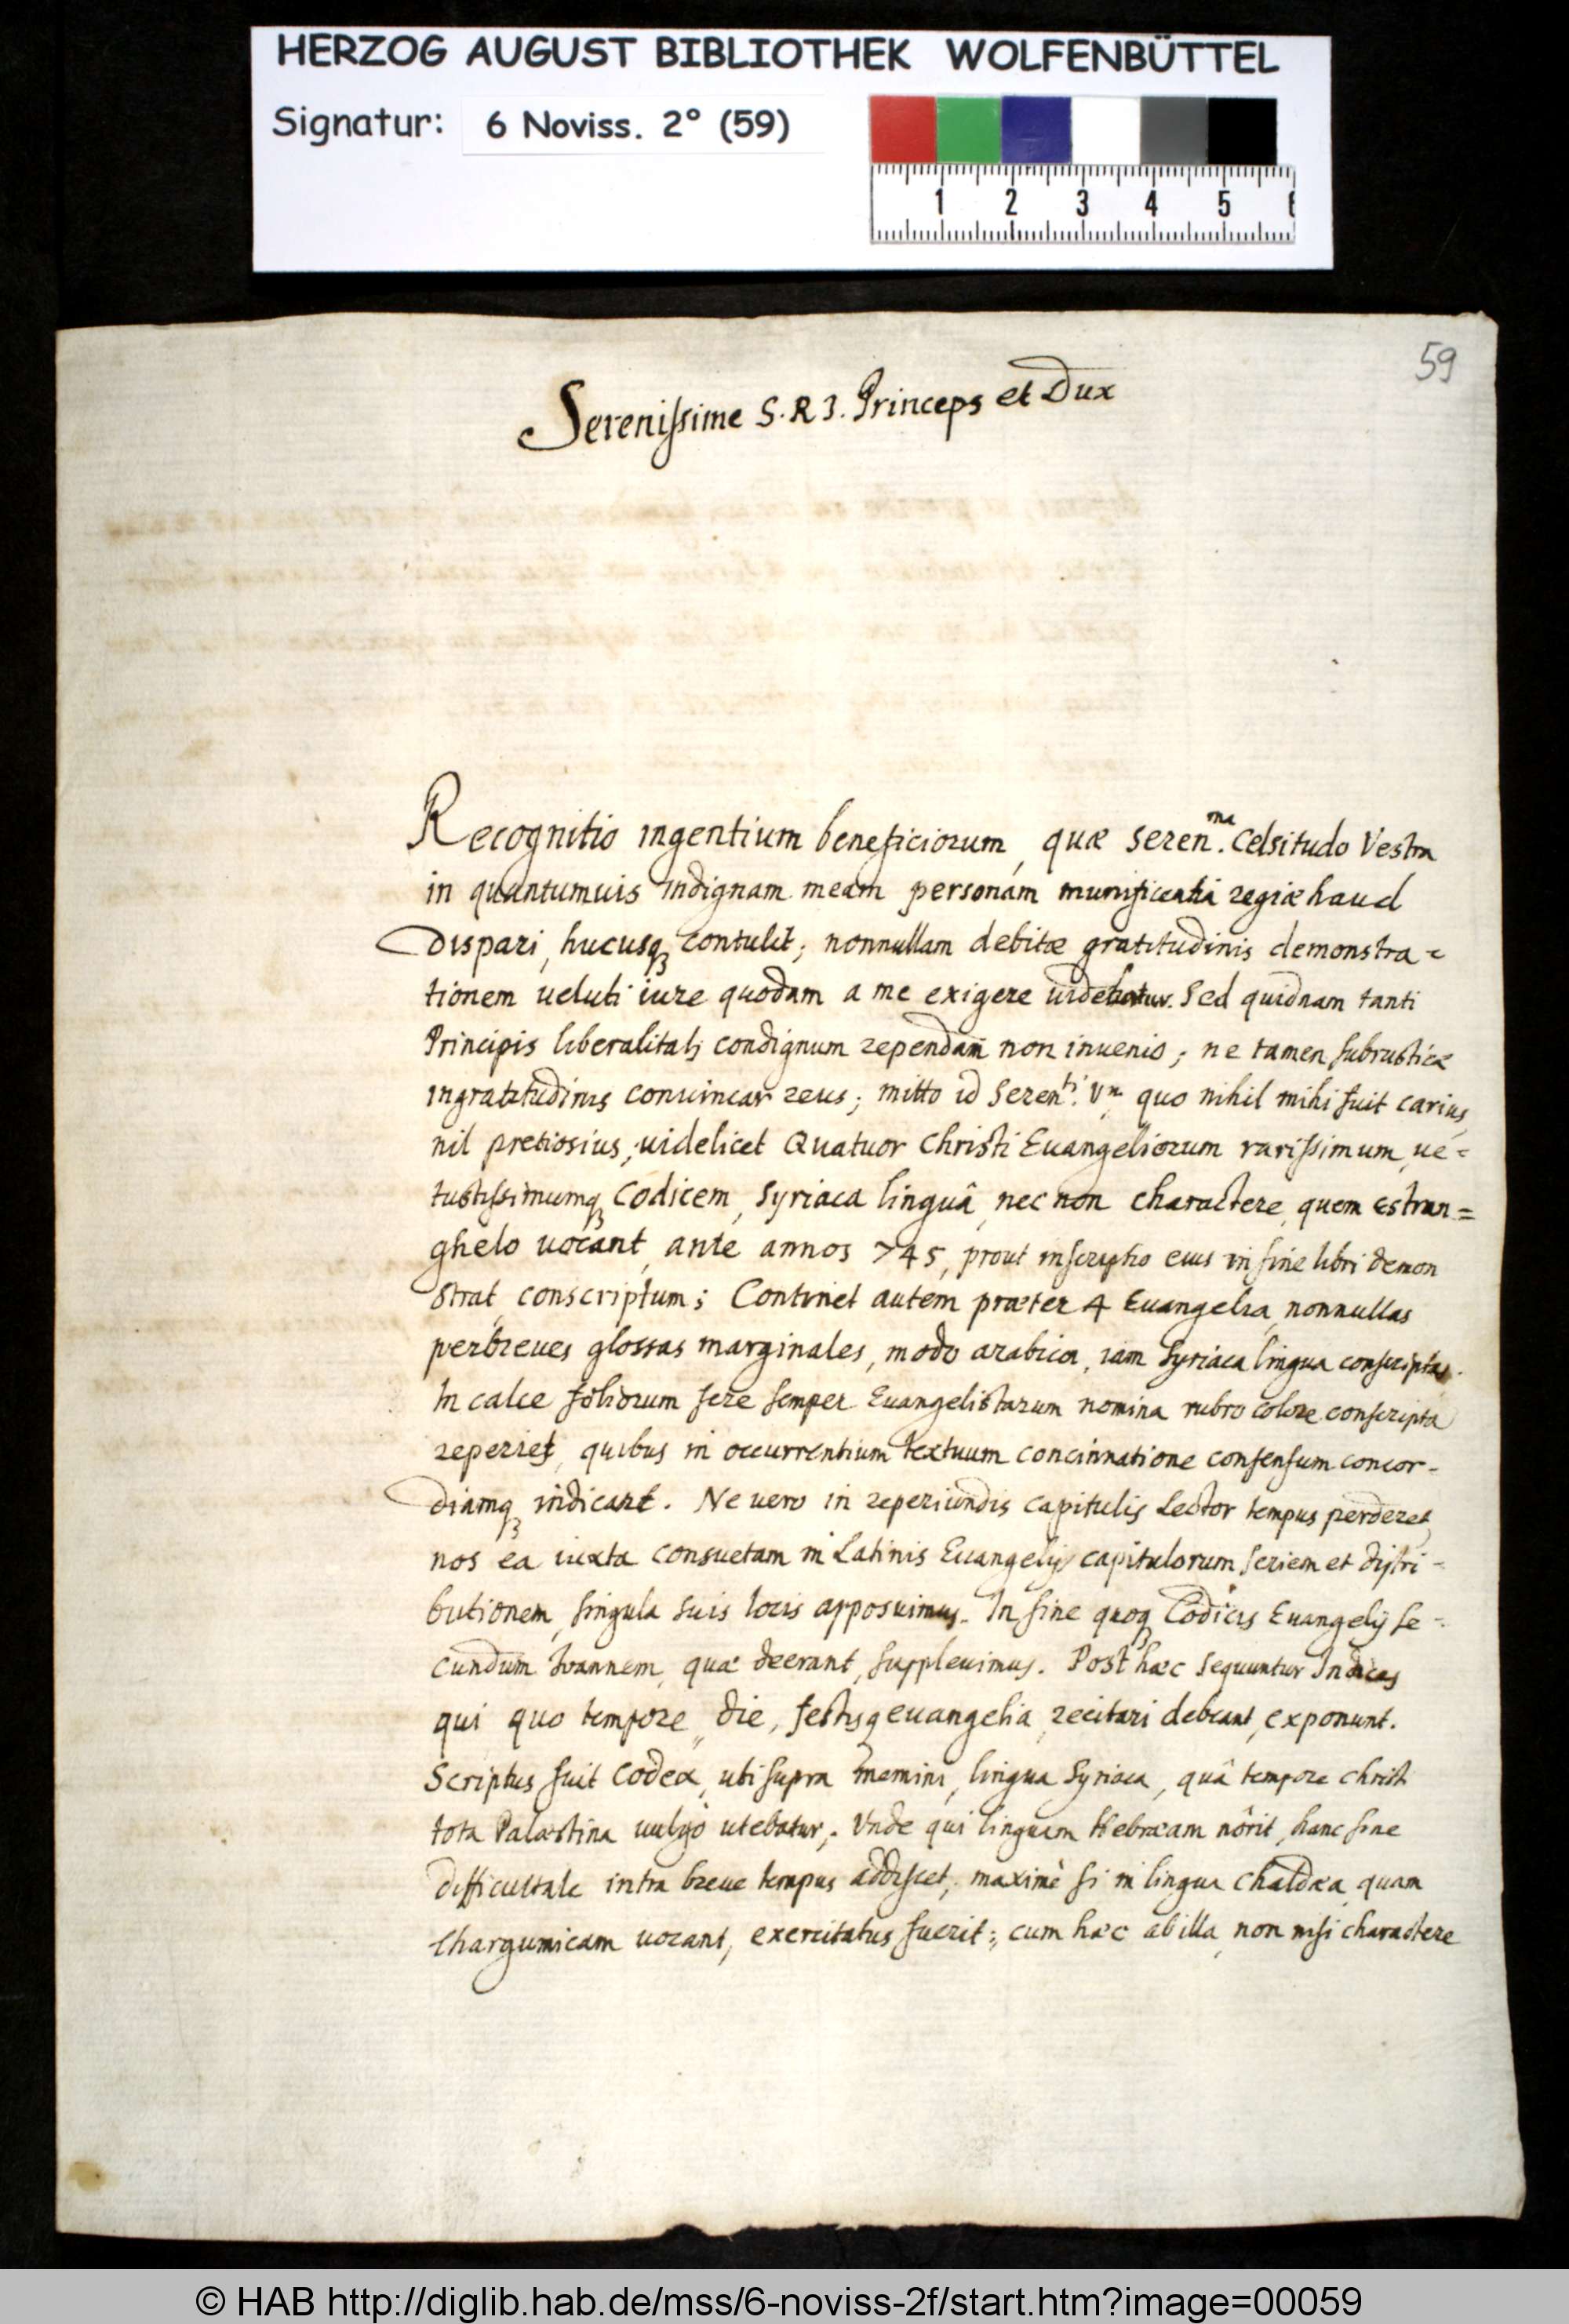 HERZOG AUGUST BIBLIOTHEK WOLFENBÜTTEL
Signatur: 6 Noviss. 2° (59)
1 2 3 4 5
59
Serenissime S. R I. Princeps et Dux
Recognitio ingentium beneficiorum, quæ Seren.ma Celsitudo Vestra
in quantumuis indignam meam personam munificentia regiæ haud
dispari, hucusq; contulit; nonnullam debitæ gratitudinis demonstra-
tionem ueluti iure quodam a me exigere uidebatur. Sed quidnam tanti
Principis liberalitati condignum rependam non inuenio; ne tamen subrusticæ
ingratitudinis conuincar reus; mitto id Seren.ti V.æ quo nihil mihi fuit carius,
nil pretiosius, uidelicet Quatuor Christi Euangeliorum rarissimum, ue-
tustissimumq; Codicem, Syriaca linguâ, nec non charactere, quem estran=
ghelo uocant, ante annos 745, prout inscriptio eius in fine libri demon
strat, conscriptum; Continet autem præter 4 Euangelia, nonnullas
perbreues glossas marginales, modo arabica, iam Syriaca lingua conscriptas.
In calce foliorum fere semper Euangelistarum nomina rubro colore conscripta
reperiet, quibus in occurrentium textuum concinnatione consensum concor-
diamq; indicant. Ne uero in reperiundis capitulis Lector tempus perderet,
nos ea iuxta consuetam in Latinis Euangelijs capitulorum seriem et distri-
butionem, singula suis locis apposuimus. In fine quoq; Codicis Euangelij se-
cundum Ioannem, quæ deerant, suppleuimus. Post hæc sequuntur Indices
qui quo tempore, die, festisq euangelia recitari debeant, exponunt.
Scriptus fuit Codex, uti supra memini, lingua Syriaca, quâ tempore Christi
tota Palæstina uulgò utebatur,. Vnde qui linguam Hebræam nôrit, hanc sine
difficultate intra breue tempus addiscet; maximè si in lingua Chaldæa, quam
thargumicam uocant, exercitatus fuerit:, cum hæc ab illa, non nisi charactere
© HAB http://diglib.hab.de/mss/6-noviss-2f/start.htm?image=00059